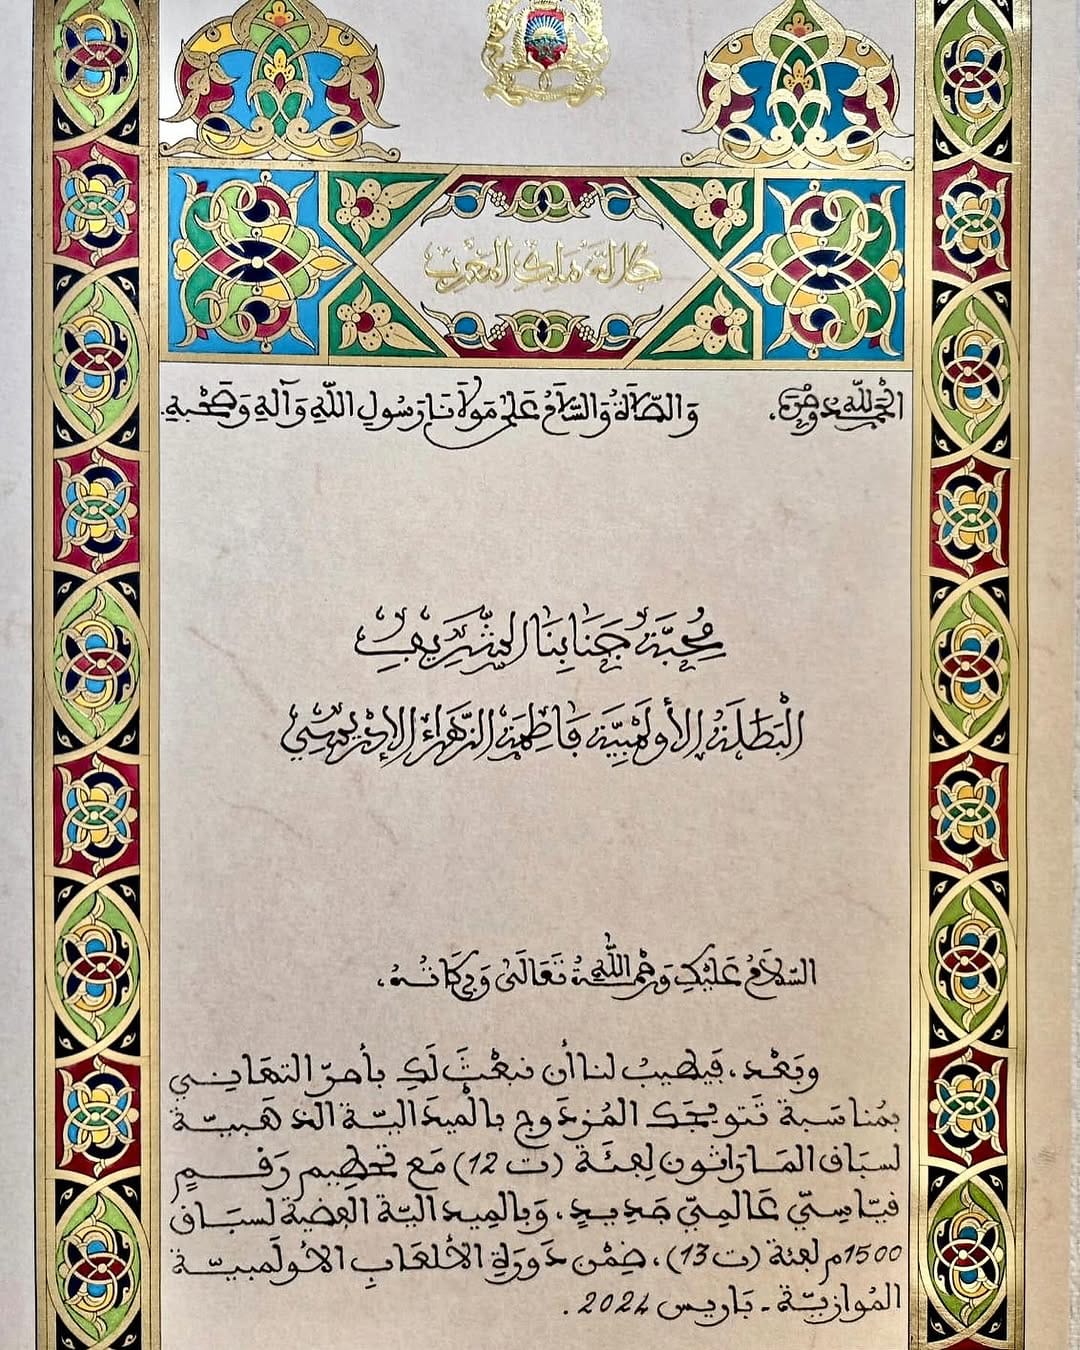 جلالة ملك المغرب
الحمد لله وحده. والصلاة والسلام على مولانا رسول الله وآله وصحبه.
مُحِبَّة جَنَابِنَا الشَّرِيفِ
الْبَطَلَة الأُولَمْبِيَّة فَاطِمَة الزَّهْرَاء الإِدْرِيسِي
السَّلَامُ عَلَيْكِ وَرَحْمَةُ اللَّهِ تَعَالَى وَبَرَكَاتُهُ.
وَبَعْد، فَيَطِيبُ لنا أن نبعَثَ لَكِ بأحرّ التهانِي
بمُناسَبة تَتويجك المُزدَوج بالميدَاليّة الذهَبيّة
لسبَاق المَارَاثون لِفِئَة (ت 12) مَع تحطِيم رَقمٍ
قيَاسِيّ عَالمِيّ جَدِيدٍ، وَبالميداليّة الفضية لسبَاق
1500م لفئة (ت 13)، ضِمْن دَورَةِ الألعَابِ الأولمبيّة
المُوازيّة - بَاريس 2024.